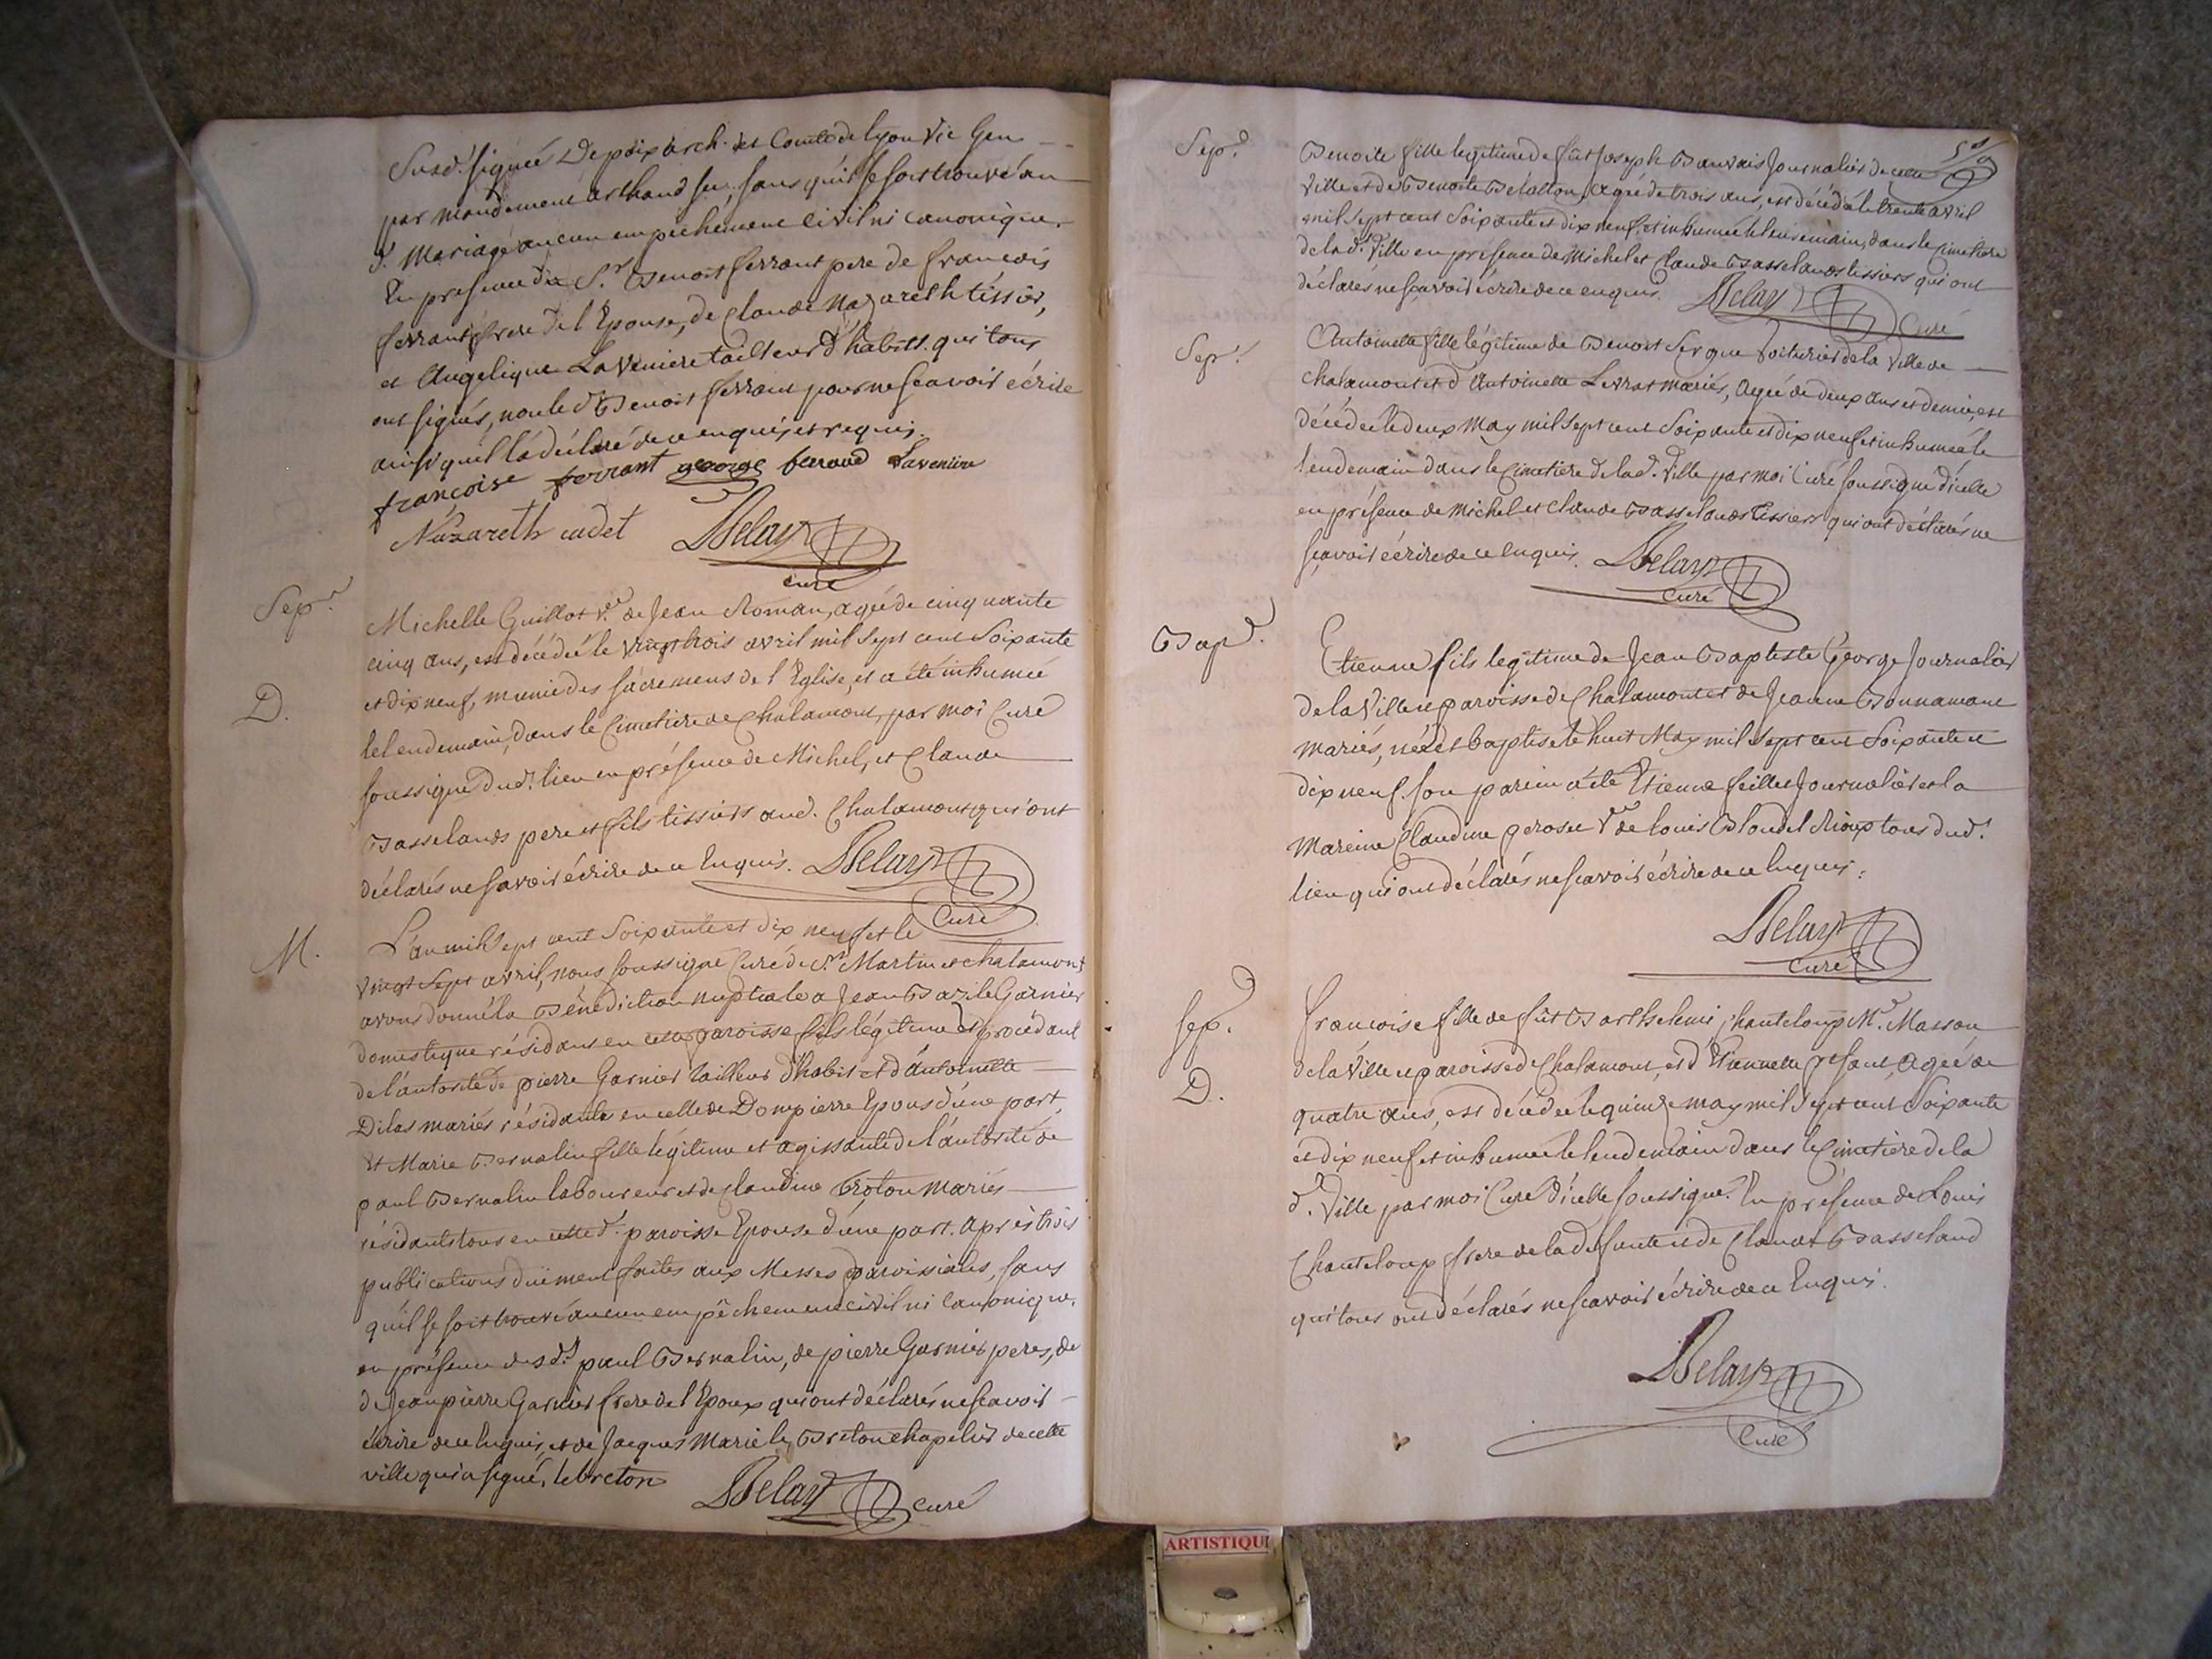 Susd. signée De poix arch. des Comtes de lyon Vic Gen
par mandement arthaud ser, sans qu'il se soit trouvé au
d. Mariage aucun empêchement civil ni canonique.
En presence du Sr. Benoit ferrant pere de francois
ferrant frere de l'Epouse, de Claude Nazareth tissier,
et Angelique Laveniere tailleur d'habits. qui tous
ont signés, non led. Benoit ferrant pour ne scavoir écrire
ainsi qu'il l'a déclaré de ce enquis et requis.
françoise ferrant george feraud Laveniere
Nazareth cadet Delay
curé
Sep.
Michelle Guillot ve. de Jean Roman, agée de cinquante
cinq ans, est décédée le vingt trois avril mil sept cent soixante
et dix neuf, munie des sacremens de l'Eglise, et a été inhumée
D.
le lendemain, dans le Cimetiere de Chalamont, par moi Curé
soussigné dud. lieu en présence de Michel, et Claude
Basselands pere et fils tissiers aud. Chalamont qui ont
déclarés ne savoir écrire de ce Enquis. Delay
Curé
M.
L'an mil sept cent soixante et dix neuf et le
vingt sept avril, nous soussigné Curé de St. Martin et chalamont
avons donné la Bénédiction nuptiale a Jean Bazile Garnier
domestique résidant en cette paroisse fils légitime et procédant
de l'autorité de pierre Garnier tailleur d'habit et d'antoinette
Dilas mariés résidants en celle de Dompierre Epoux d'une part
et Marie Bernalin fille légitime et agissante de l'autorité de
paul Bernalin laboureur et de Claudine Groton mariés
résidants tous en cette d. paroisse Epouse d'une part. après trois
publications düement faites aux Messes paroissiales, sans
qu'il se soit trouvé aucun empêchement civil ni canonique.
en présence desd. paul Bernalin, de pierre Garnier peres, de
de Jean pierre Garnier frere de l'Epoux qui ont déclarés ne scavoir
écrire de ce enquis, et de Jacques Marie le Breton chapelier de cette
ville qui a signé. lebreton Delay curé
Sep.
Benoite fille legitime de fût Joseph Bauvais Journalier de cette
ville et de Benoite Delaston, agée de trois ans, est décédée le trente avril
mil sept cent soixante et dix neuf, et inhumée le lendemain, dans le Cimetiere
de lad. Ville en présence de Michel et Claude Basselands tissiers qui ont
déclarés ne scavoir écrire de ce enquis. Delay
Curé
Sep.
Antoinette fille légitime de Benoit Sergue voiturier de la Ville de
chalamont et d'Antoinette Levrat mariés, agée de deux ans et demie, est
décédée le deux May mil sept cent soixante et dix neuf et inhumée le
lendemain dans le Cimetiere de lad. Ville par moi Curé soussigné d'icelle
en présence de Michel et Claude Basselands tissiers qui ont déclarés ne
scavoir écrire de ce enquis. Delay
Curé
Bap.
Etienne fils legitime de Jean Baptiste George Journalier
de la Ville et paroisse de Chalamont et de Jeanne Bonnamour
mariés, né et baptisé le huit May mil sept cent soixante et
dix neuf. son parein a été Etienne feillet Journalier et la
Mareine Claudine perosee ve. de louis tous dud.
lieu qui ont déclarés ne scavoir écrire de ce enquis.
Delay
Curé
Sep.
francoise fille de fût Barthelemi chanteloup Me. Masson
de la Ville et paroisse de Chalamont, et d'Etiennette agée de
D.
quatre ans, est décédée le quinze may mil sept cent soixante
et dix neuf et inhumée le lendemain dans le Cimetiere de la
d. Ville par moi Curé d'icelle soussigné. En présence de Louis
Chanteloup frere de la defunte et de Claude Basseland
qui tous ont déclarés ne scavoir écrire de ce Enquis.
Delay
Curé
ARTISTIQU